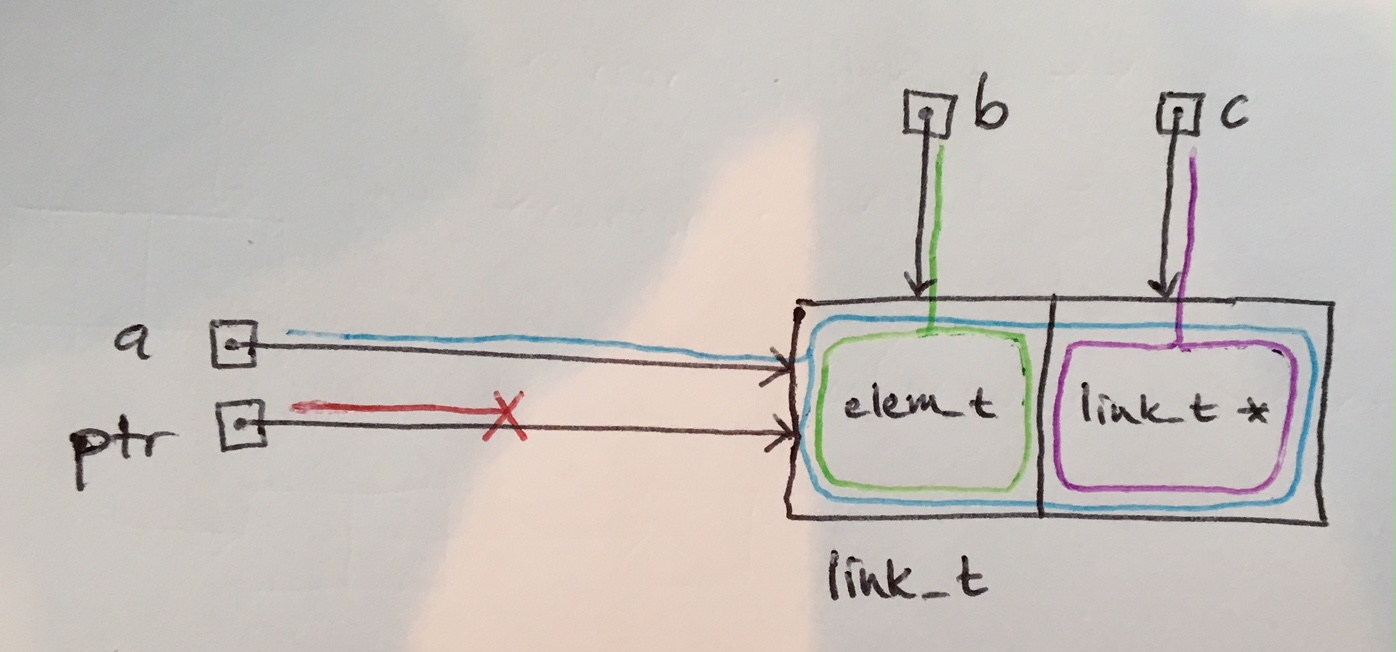 b
c
a
ptr
elem_t
link_t *
link_t